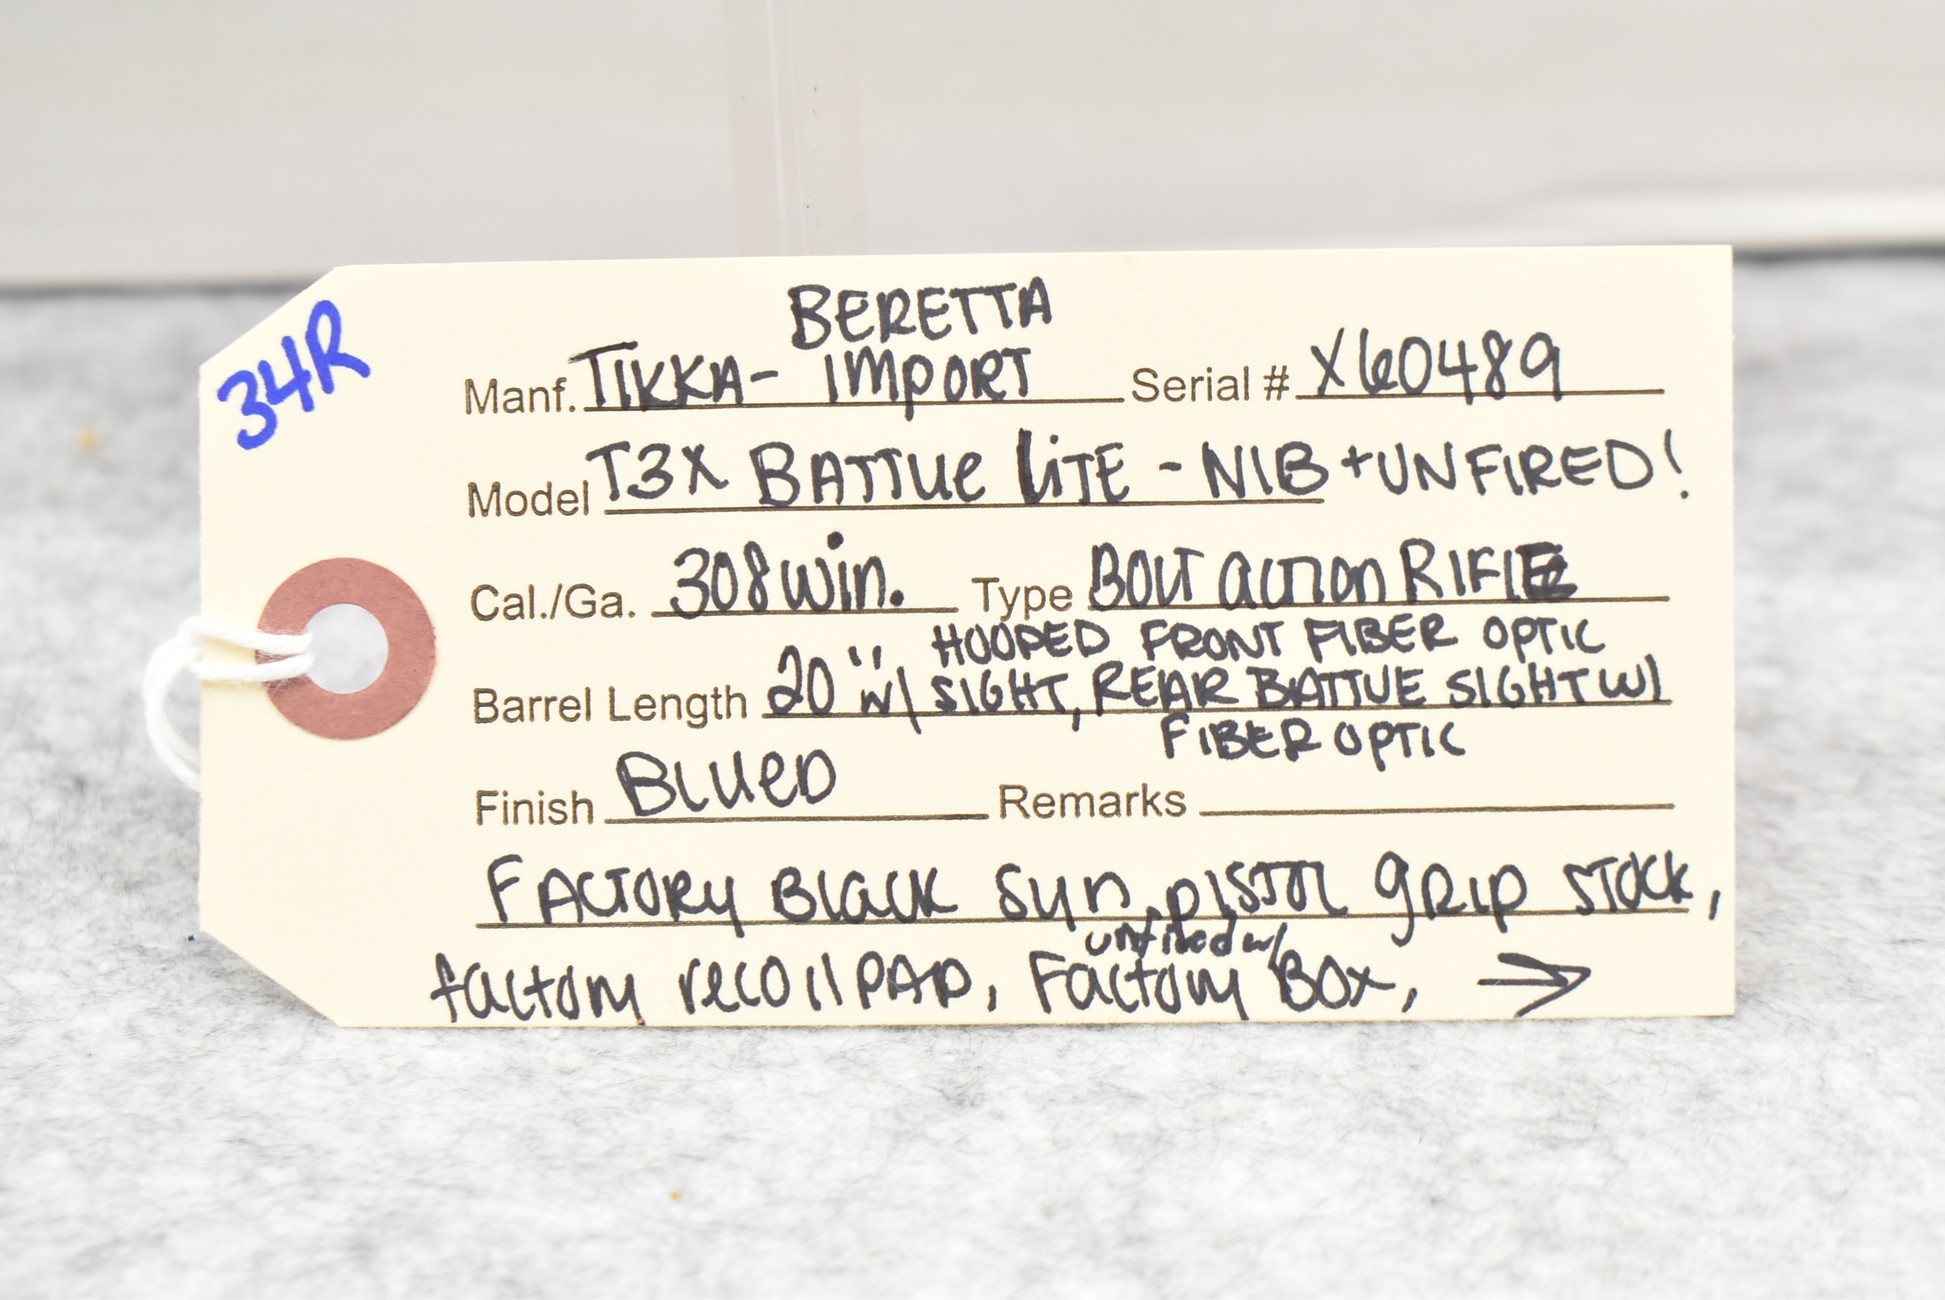 34R
BERETTA
Manf. TIKKA- IMPORT Serial # X60489
Model T3X BATTUE LITE - NIB + UNFIRED!
Cal./Ga. 308 win. Type BOLT action RIFLE
HOODED FRONT FIBER OPTIC
Barrel Length 20" w/ SIGHT, REAR BATTUE SIGHT W/
FIBER OPTIC
Finish BLUED Remarks
FACTORY BLACK syn. pISTOL gRIP STOCK,
unfired w/
factory recoil PAD, Factory BOX, →